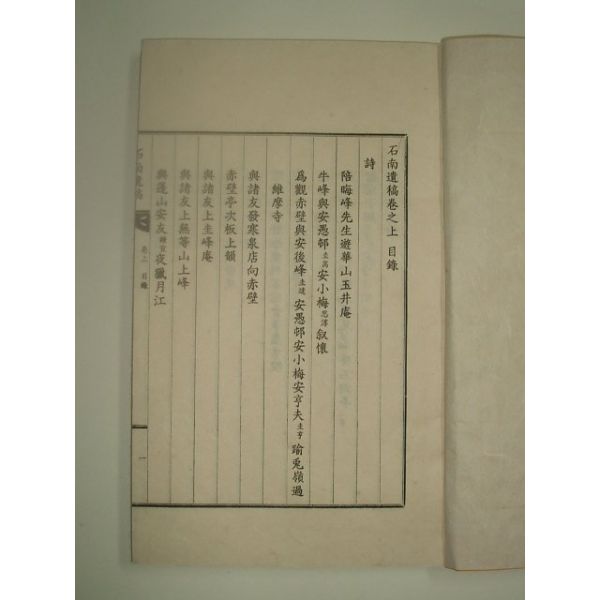 石南遺稿卷之上 目錄
詩
陪晦峰先生遊華山玉井庵
牛峰與安愚邨圭萬安小梅思淳叙懷
爲觀赤壁與安後峰圭建安愚邨安小梅安亨夫圭亨踰兎嶺過
維摩寺
與諸友發寒泉店向赤壁
赤壁亭次板上韻
與諸友上圭峰庵
與諸友上無等山上峰
與蓬山安友鍾宣夜驪月江
石南遺稿
卷上 目錄
一